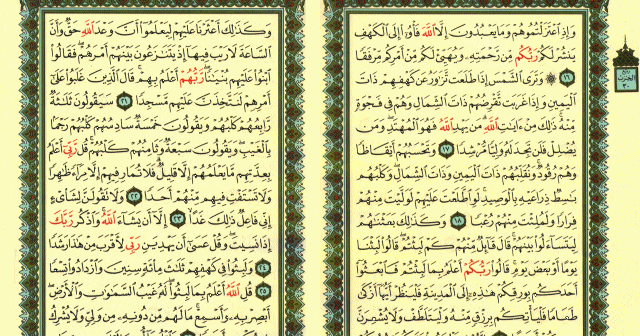 وَإِذِ ٱعْتَزَلْتُمُوهُمْ وَمَا يَعْبُدُونَ إِلَّا ٱللَّهَ فَأْوُۥٓا۟ إِلَى ٱلْكَهْفِ
يَنشُرْ لَكُمْ رَبُّكُم مِّن رَّحْمَتِهِۦ وَيُهَيِّئْ لَكُم مِّنْ أَمْرِكُم مِّرْفَقًا
١٦ ۞ وَتَرَى ٱلشَّمْسَ إِذَا طَلَعَت تَّزَٰوَرُ عَن كَهْفِهِمْ ذَاتَ
ٱلْيَمِينِ وَإِذَا غَرَبَت تَّقْرِضُهُمْ ذَاتَ ٱلشِّمَالِ وَهُمْ فِى فَجْوَةٍ
مِّنْهُ ۚ ذَٰلِكَ مِنْ ءَايَٰتِ ٱللَّهِ ۗ مَن يَهْدِ ٱللَّهُ فَهُوَ ٱلْمُهْتَدِ ۖ وَمَن
يُضْلِلْ فَلَن تَجِدَ لَهُۥ وَلِيًّا مُّرْشِدًا ١٧ وَتَحْسَبُهُمْ أَيْقَاظًا
وَهُمْ رُقُودٌ ۚ وَنُقَلِّبُهُمْ ذَاتَ ٱلْيَمِينِ وَذَاتَ ٱلشِّمَالِ ۖ وَكَلْبُهُم
بَٰسِطٌ ذِرَاعَيْهِ بِٱلْوَصِيدِ ۚ لَوِ ٱطَّلَعْتَ عَلَيْهِمْ لَوَلَّيْتَ مِنْهُمْ
فِرَارًا وَلَمُلِئْتَ مِنْهُمْ رُعْبًا ١٨ وَكَذَٰلِكَ بَعَثْنَٰهُمْ
لِيَتَسَآءَلُوا۟ بَيْنَهُمْ ۚ قَالَ قَآئِلٌ مِّنْهُمْ كَمْ لَبِثْتُمْ ۖ قَالُوا۟ لَبِثْنَا
يَوْمًا أَوْ بَعْضَ يَوْمٍ ۚ قَالُوا۟ رَبُّكُمْ أَعْلَمُ بِمَا لَبِثْتُمْ فَٱبْعَثُوٓا۟
أَحَدَكُم بِوَرِقِكُمْ هَٰذِهِۦٓ إِلَى ٱلْمَدِينَةِ فَلْيَنظُرْ أَيُّهَآ أَزْكَىٰ
طَعَامًا فَلْيَأْتِكُم بِرِزْقٍ مِّنْهُ وَلْيَتَلَطَّفْ وَلَا يُشْعِرَنَّ
وَكَذَٰلِكَ أَعْثَرْنَا عَلَيْهِمْ لِيَعْلَمُوٓا۟ أَنَّ وَعْدَ ٱللَّهِ حَقٌّ وَأَنَّ
ٱلسَّاعَةَ لَا رَيْبَ فِيهَآ إِذْ يَتَنَٰزَعُونَ بَيْنَهُمْ أَمْرَهُمْ ۖ فَقَالُوا۟
ٱبْنُوا۟ عَلَيْهِم بُنْيَٰنًا ۖ رَّبُّهُمْ أَعْلَمُ بِهِمْ ۚ قَالَ ٱلَّذِينَ غَلَبُوا۟ عَلَىٰٓ
أَمْرِهِمْ لَنَتَّخِذَنَّ عَلَيْهِم مَّسْجِدًا ٢١ سَيَقُولُونَ ثَلَٰثَةٌ
رَّابِعُهُمْ كَلْبُهُمْ وَيَقُولُونَ خَمْسَةٌ سَادِسُهُمْ كَلْبُهُمْ رَجْمًۢا
بِٱلْغَيْبِ ۖ وَيَقُولُونَ سَبْعَةٌ وَثَامِنُهُمْ كَلْبُهُمْ ۚ قُل رَّبِّىٓ أَعْلَمُ
بِعِدَّتِهِم مَّا يَعْلَمُهُمْ إِلَّا قَلِيلٌ ۗ فَلَا تُمَارِ فِيهِمْ إِلَّا مِرَآءً ظَٰهِرًا
وَلَا تَسْتَفْتِ فِيهِم مِّنْهُمْ أَحَدًا ٢٢ وَلَا تَقُولَنَّ لِشَا۟ىْءٍ
إِنِّى فَاعِلٌ ذَٰلِكَ غَدًا ٢٣ إِلَّآ أَن يَشَآءَ ٱللَّهُ ۚ وَٱذْكُر رَّبَّكَ
إِذَا نَسِيتَ وَقُلْ عَسَىٰٓ أَن يَهْدِيَنِ رَبِّى لِأَقْرَبَ مِنْ هَٰذَا رَشَدًا
٢٤ وَلَبِثُوا۟ فِى كَهْفِهِمْ ثَلَٰثَ مِا۟ئَةٍ سِنِينَ وَٱزْدَادُوا۟ تِسْعًا
٢٥ قُلِ ٱللَّهُ أَعْلَمُ بِمَا لَبِثُوا۟ ۖ لَهُۥ غَيْبُ ٱلسَّمَٰوَٰتِ وَٱلْأَرْضِ ۖ
أَبْصِرْ بِهِۦ وَأَسْمِعْ ۚ مَا لَهُم مِّن دُونِهِۦ مِن وَلِىٍّ وَلَا يُشْرِكُ